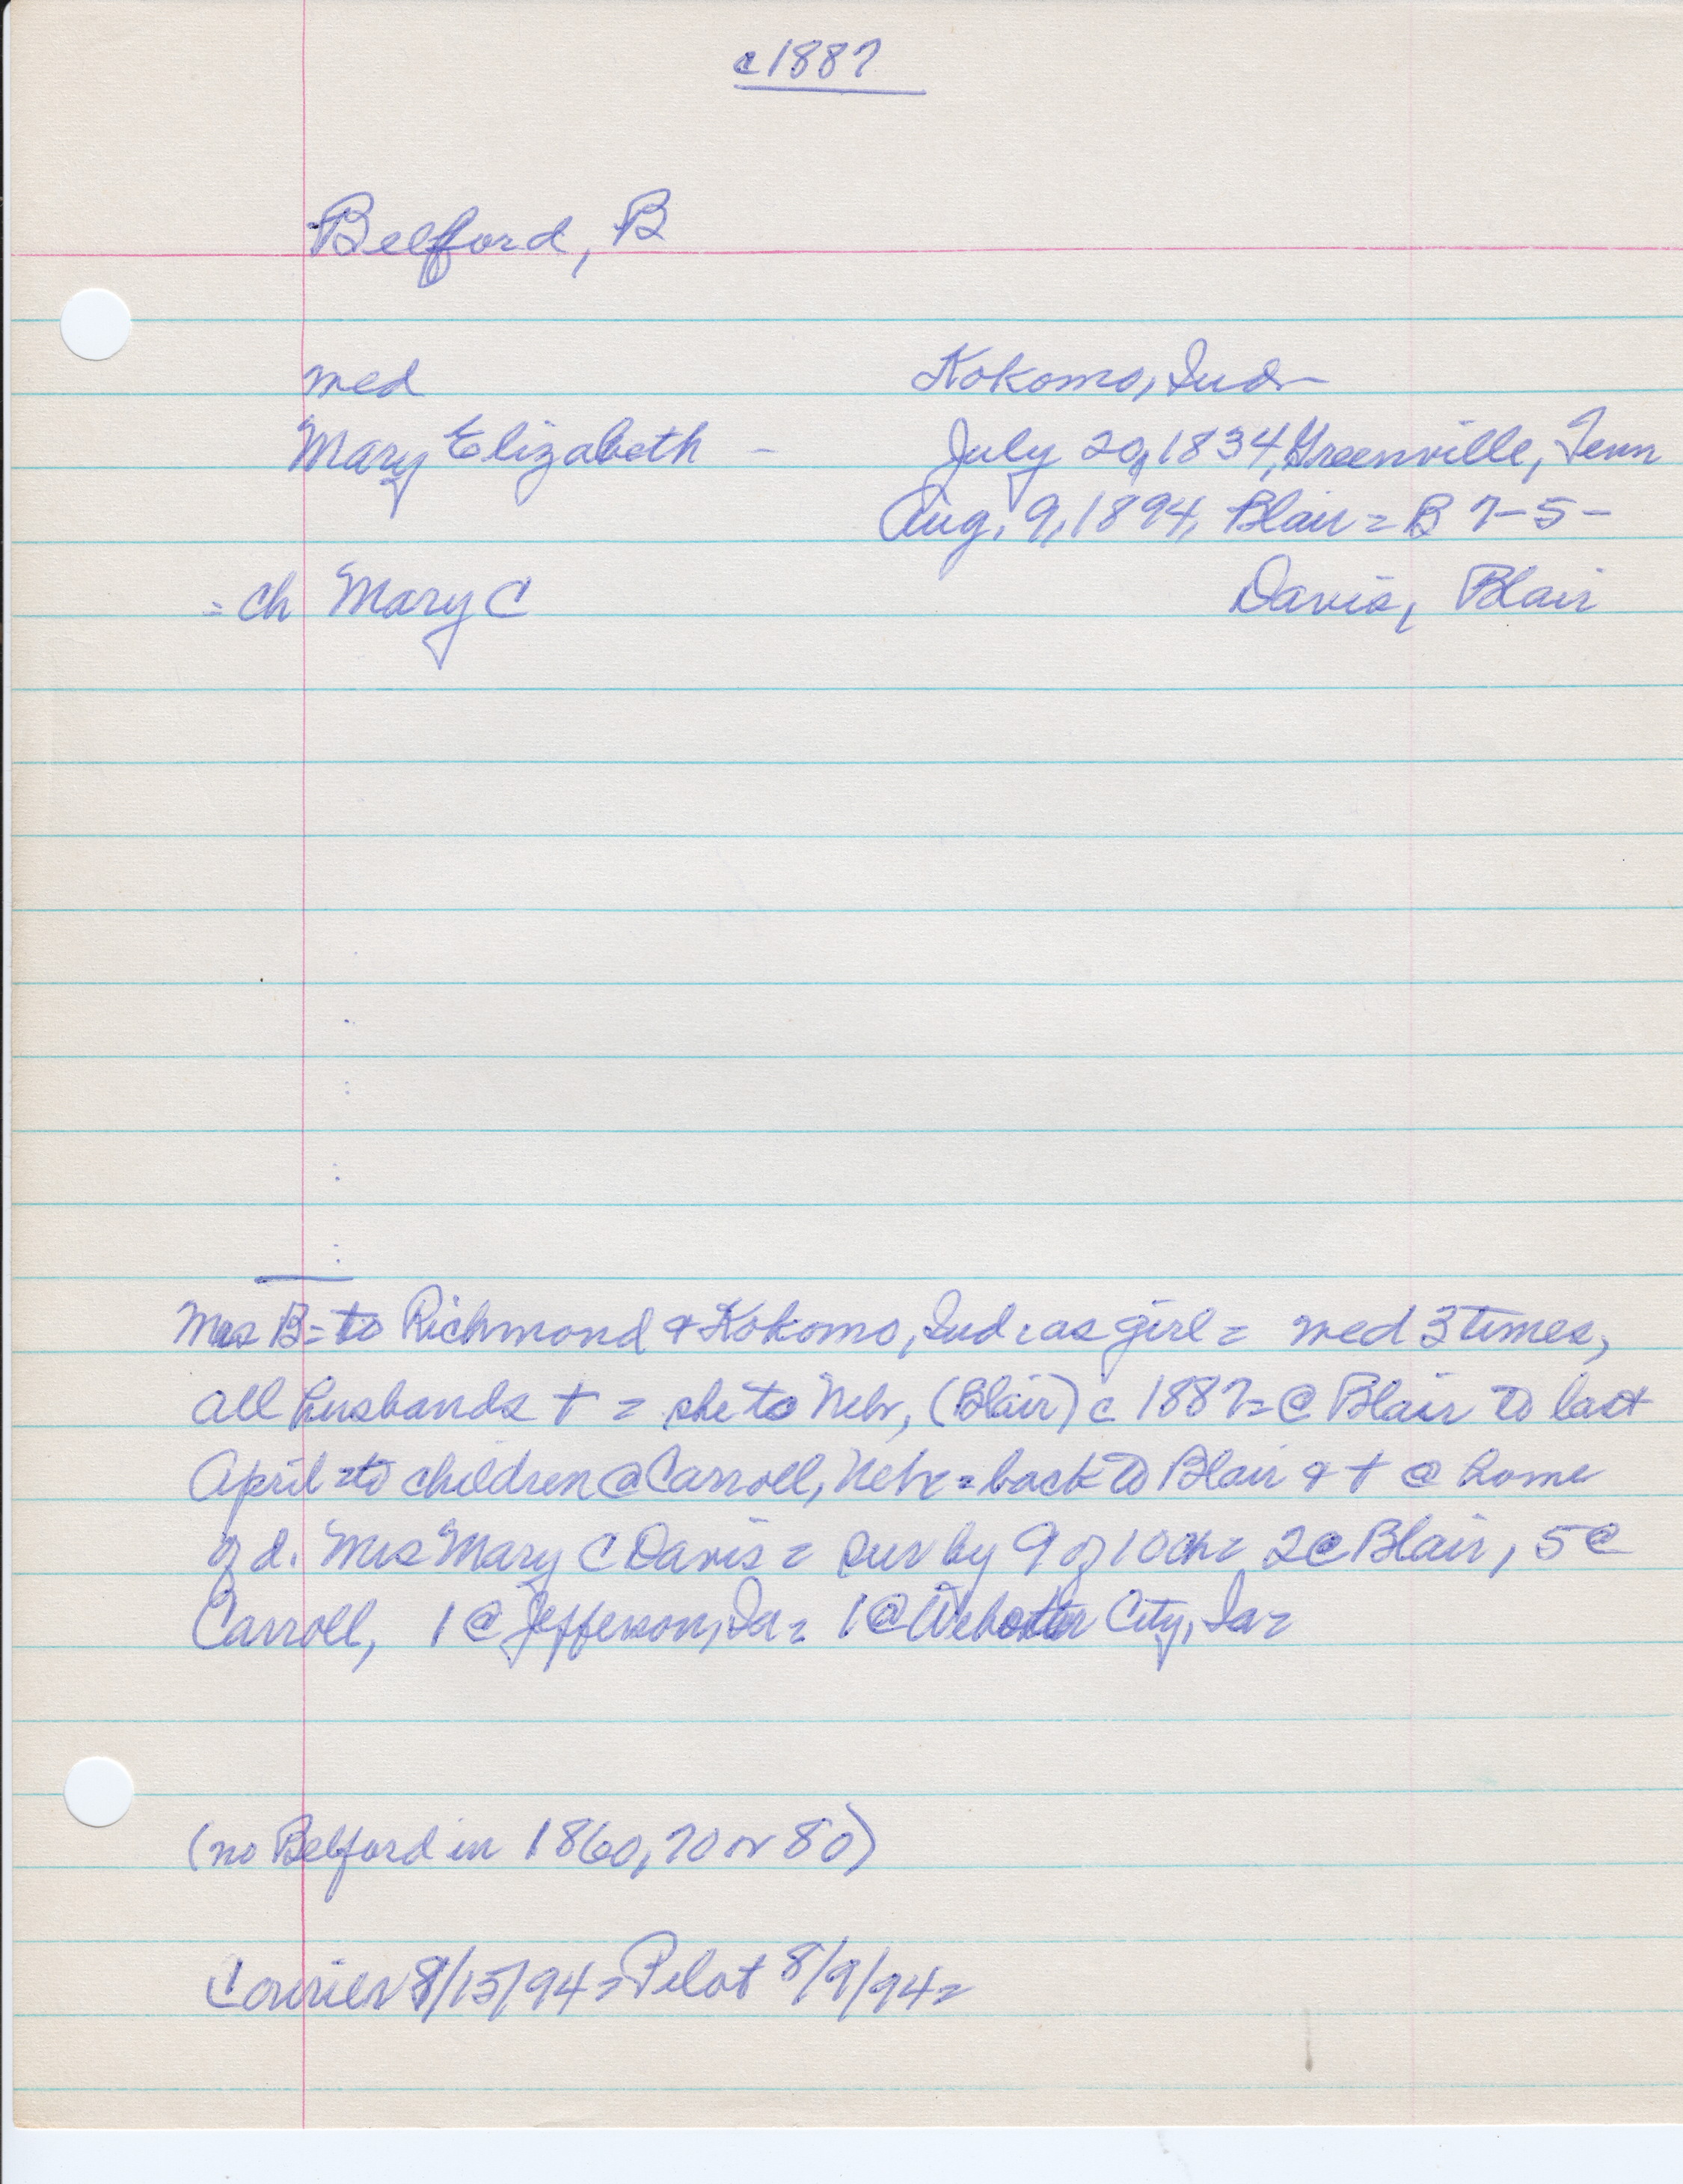 c1887
Belford, B
med Kokomo, Ind -
Mary Elizabeth - July 20, 1834, Greenville, Tenn
Aug. 9, 1894, Blair = B 7-5-
= ch Mary C Davis, Blair
Mrs B = to Richmond & Kokomo, Ind. as girl = med 3 times,
all husbands + = she to Nebr, (Blair) c 1887 = @ Blair to last
April = to children @ Carroll, Nebr = back to Blair & + @ home
of d. Mrs Mary C Davis = sur by 9 of 10 ch = 2 @ Blair, 5 @
Carroll, 1 @ Jefferson, Ia = 1 @ Webster City, Ia =
(no Belford in 1860, 70 or 80)
Courier 8/15/94 = Pilot 8/9/94 =